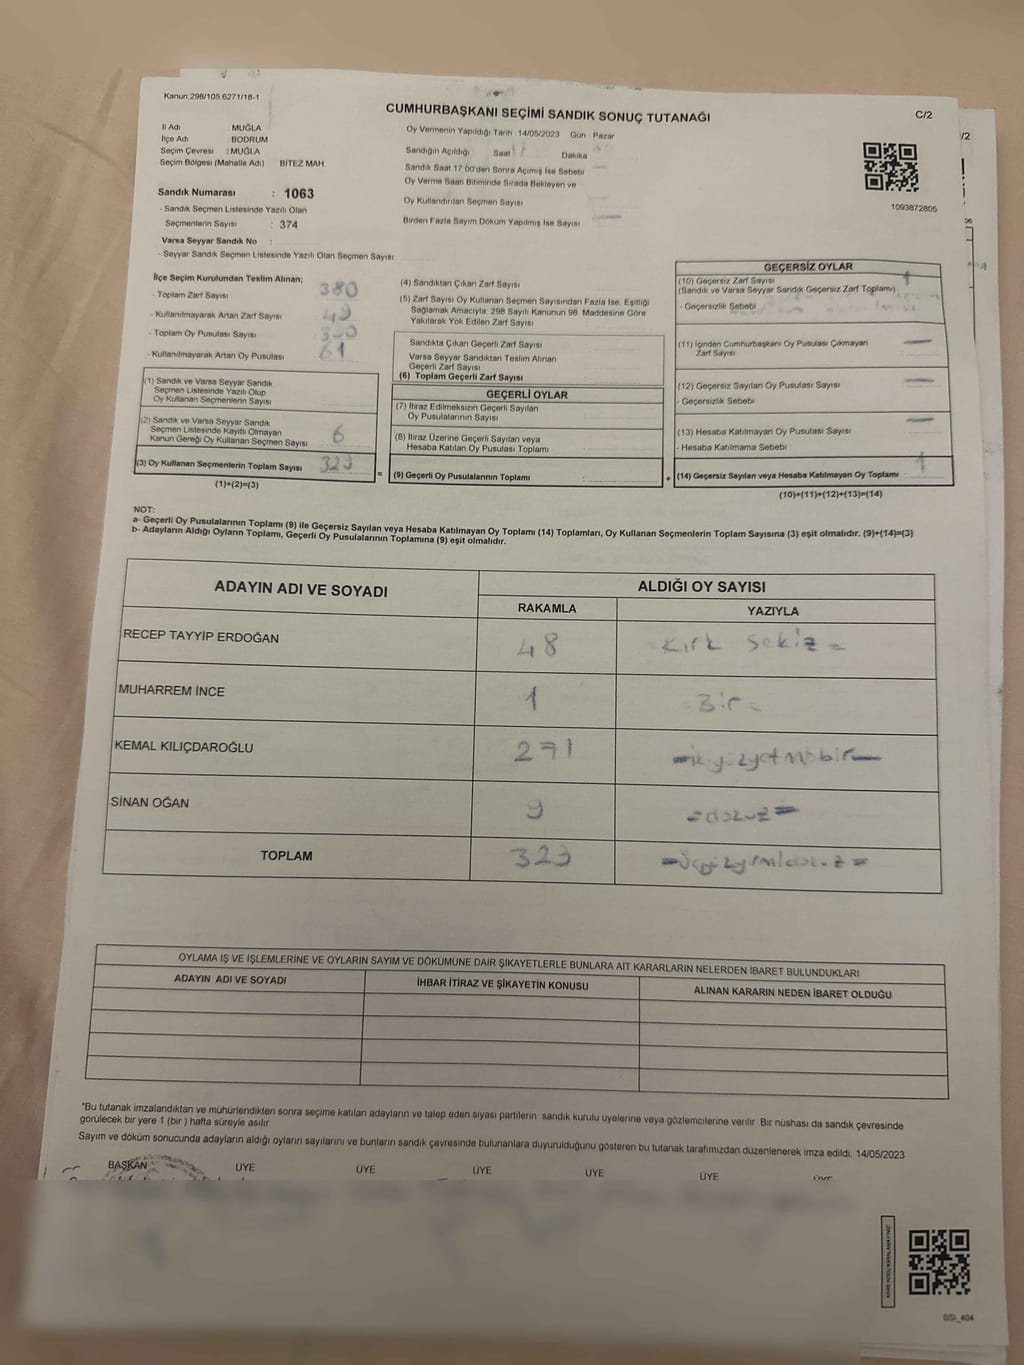 Kanun:298/105,6271/18-1
CUMHURBAŞKANI SEÇİMİ SANDIK SONUÇ TUTANAĞI
C/2
İl Adı MUĞLA
İlçe Adı BODRUM
Seçim Çevresi : MUĞLA
Seçim Bölgesi (Mahalle Adı) BİTEZ MAH
Sandık Numarası : 1063
- Sandık Seçmen Listesinde Yazılı Olan
Seçmenlerin Sayısı : 374
Varsa Seyyar Sandık No :
- Seyyar Sandık Seçmen Listesinde Yazılı Olan Seçmen Sayısı:
Oy Vermenin Yapıldığı Tarih 14/05/2023 Gün Pazar
Sandığın Açıldığı Saat Dakika
Sandık Saat 17.00'den Sonra Açımış İse Sebebi
Oy Verme Saati Bitiminde Sırada Bekleyen ve
Oy Kullandırılan Seçmen Sayısı
Birden Fazla Sayım Döküm Yapılmış İse Sayısı
1093872805
/2
İlçe Seçim Kurulundan Teslim Alınan;
- Toplam Zarf Sayısı 380
- Kullanılmayarak Artan Zarf Sayısı 49
- Toplam Oy Pusulası Sayısı
- Kullanılmayarak Artan Oy Pusulası 61
(1) Sandık ve Varsa Seyyar Sandık
Seçmen Listesinde Yazılı Olup
Oy Kullanan Seçmenlerin Sayısı
(2) Sandık ve Varsa Seyyar Sandık
Seçmen Listesinde Kayıtlı Olmayan
Kanun Gereği Oy Kullanan Seçmen Sayısı 6
(3) Oy Kullanan Seçmenlerin Toplam Sayısı 329
(1)+(2)=(3)
=
(4) Sandıktan Çıkan Zarf Sayısı
(5) Zarf Sayısı Oy Kullanan Seçmen Sayısından Fazla İse, Eşitliği
Sağlamak Amacıyla 298 Sayılı Kanunun 98. Maddesine Göre
Yakılarak Yok Edilen Zarf Sayısı
Sandıkta Çıkan Geçerli Zarf Sayısı
Varsa Seyyar Sandıktan Teslim Alınan
Geçerli Zarf Sayısı
(6) Toplam Geçerli Zarf Sayısı
GEÇERLİ OYLAR
(7) İtiraz Edilmeksizin Geçerli Sayılan
Oy Pusulalarının Sayısı
(8) İtiraz Üzerine Geçerli Sayılan veya
Hesaba Katılan Oy Pusulası Toplamı
(9) Geçerli Oy Pusulalarının Toplamı
+
GEÇERSİZ OYLAR
(10) Geçersiz Zarf Sayısı 1
(Sandık ve Varsa Seyyar Sandık Geçersiz Zarf Toplamı)
- Geçersizlik Sebebi
(11) İçinden Cumhurbaşkanı Oy Pusulası Çıkmayan
Zarf Sayısı
(12) Geçersiz Sayılan Oy Pusulası Sayısı
- Geçersizlik Sebebi
(13) Hesaba Katılmayan Oy Pusulası Sayısı
- Hesaba Katılmama Sebebi
(14) Geçersiz Sayılan veya Hesaba Katılmayan Oy Toplamı : 1
(10)+(11)+(12)+(13)=(14)
NOT:
a- Geçerli Oy Pusulalarının Toplamı (9) ile Geçersiz Sayılan veya Hesaba Katılmayan Oy Toplamı (14) Toplamları, Oy Kullanan Seçmenlerin Toplam Sayısına (3) eşit olmalıdır. (9)+(14)=(3)
b- Adayların Aldığı Oyların Toplamı, Geçerli Oy Pusulalarının Toplamına (9) eşit olmalıdır.
ADAYIN ADI VE SOYADI
ALDIĞI OY SAYISI
RAKAMLA YAZIYLA
RECEP TAYYİP ERDOĞAN 48 Kırk Sekiz
MUHARREM İNCE 1 Bir
KEMAL KILIÇDAROĞLU 271 ikiyüzyetmişbir
SİNAN OĞAN 9 dokuz
TOPLAM 329 Üçyüzyirmidokuz
OYLAMA İŞ VE İŞLEMLERİNE VE OYLARIN SAYIM VE DÖKÜMÜNE DAİR ŞİKAYETLERLE BUNLARA AİT KARARLARIN NELERDEN İBARET BULUNDUKLARI
ADAYIN ADI VE SOYADI İHBAR İTİRAZ VE ŞİKAYETİN KONUSU ALINAN KARARIN NEDEN İBARET OLDUĞU
*Bu tutanak imzalandıktan ve mühürlendikten sonra seçime katılan adayların ve talep eden siyasi partilerin sandık kurulu üyelerine veya gözlemcilerine verilir. Bir nüshası da sandık çevresinde
görülecek bir yere 1 (bir ) hafta süreyle asılır.
Sayım ve döküm sonucunda adayların aldığı oyların sayılarını ve bunların sandık çevresinde bulunanlara duyurulduğunu gösteren bu tutanak tarafımızdan düzenlenerek imza edildi. 14/05/2023
BAŞKAN ÜYE ÜYE ÜYE ÜYE ÜYE ÜYE
SSI_404